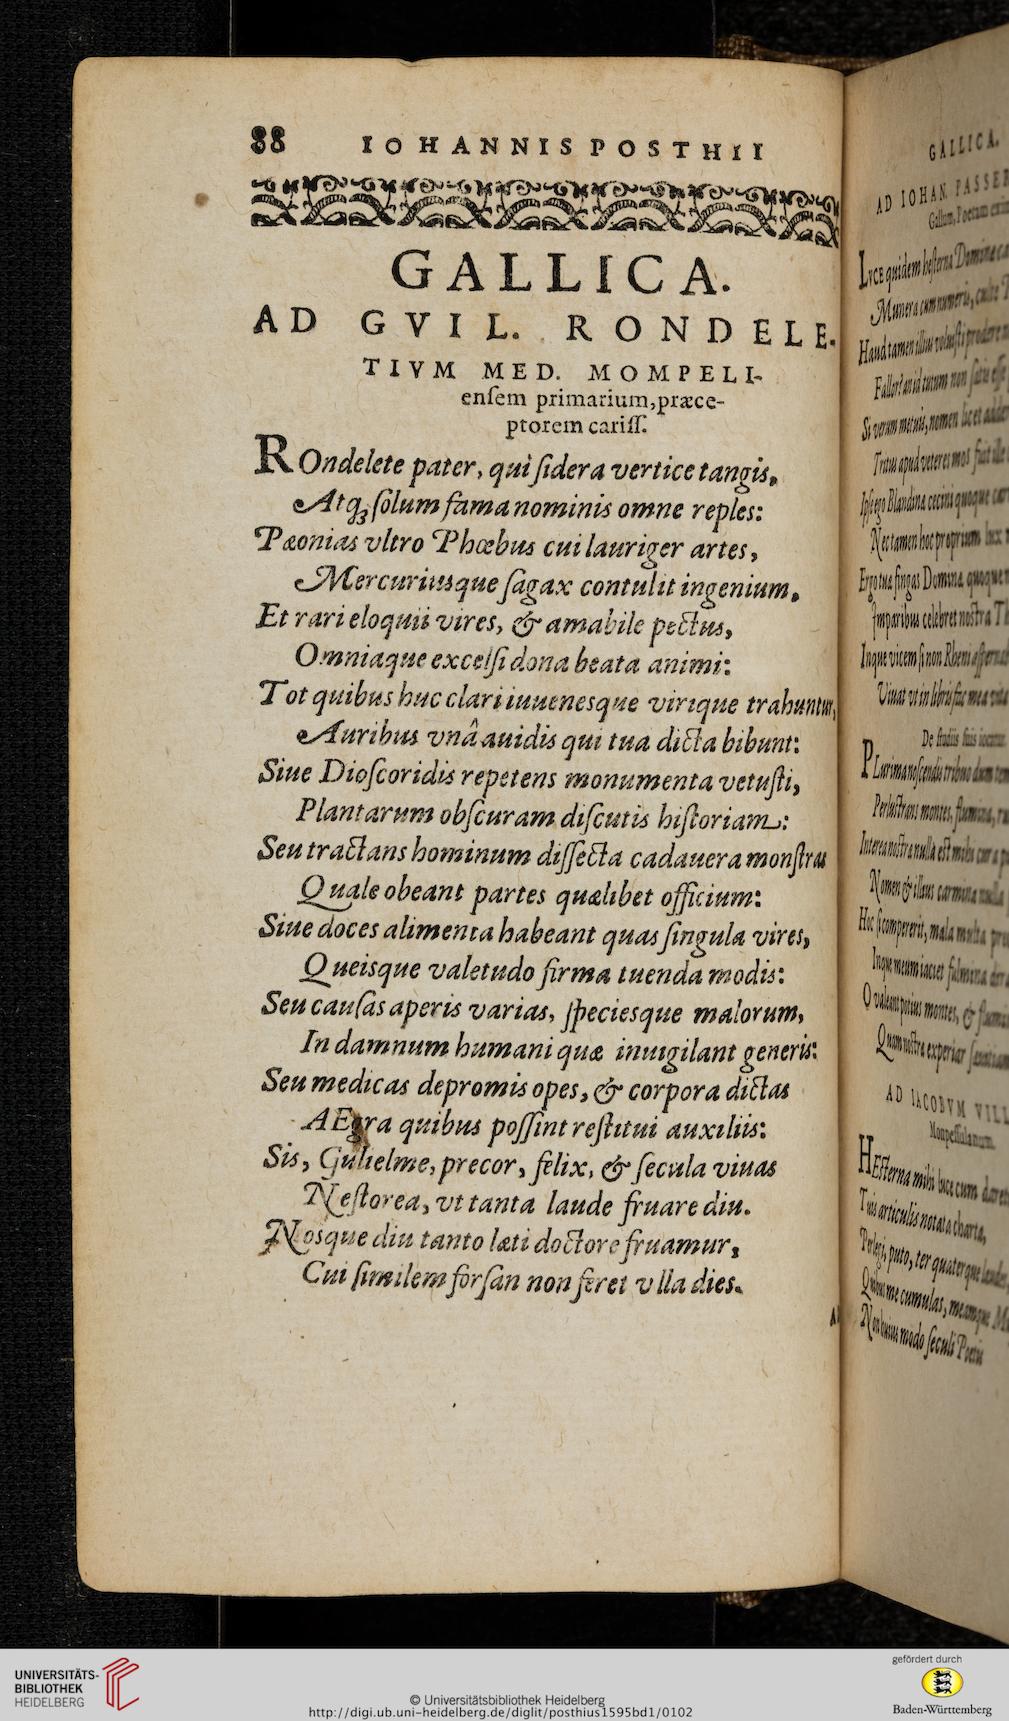 88 IOHANNIS POSTHII
GALLICA.
AD GVIL. RONDELE-
TIVM MED. MOMPELI-
enſem primarium, præce-
ptorem cariſſ.
ROndelete pater, qui ſidera vertice tangis,
Atq; ſolum fama nominis omne reples:
Pæonias vltro Phœbus cui lauriger artes,
Mercuriusque ſagax contulit ingenium,
Et rari eloquii vires, & amabile pectus,
Omniaque excelſi dona beata animi:
Tot quibus huc clari iuuenesque virique trahuntur,
Auribus vnâ auidis qui tua dicta bibunt:
Siue Dioſcoridis repetens monumenta vetuſti,
Plantarum obſcuram diſcutis hiſtoriam:
Seu tractans hominum diſſecta cadauera monſtras
Quale obeant partes quælibet officium:
Siue doces alimenta habeant quas ſingula vires,
Queisque valetudo firma tuenda modis:
Seu cauſas aperis varias, ſpeciesque malorum,
In damnum humani quæ inuigilant generis:
Seu medicas depromis opes, & corpora dictas
AEgra quibus poſſint reſtitui auxiliis:
Sis, Gulielme, precor, felix, & ſecula viuas
Neſtorea, vt tanta laude fruare diu.
Nosque diu tanto læti doctore fruamur,
Cui ſimilem forſan non feret vlla dies.
GALLICA.
AD IOHAN. PASSER
Gallum, Poetam
LVCE quidem heſterna Domine
Munera cum numeris,
Haud tamen illius voluiſti prodere
Fallor? an id tutum non ſatis eſſe
Si verum metuis, nomen licet adder
Tritus apud veteres mos fuit ille
Ipſe ego Blandina cecini quoque
Nec tamen hoc proprium
Ergo tua fingas Domina quoque
Imparibus celebret noſtra
Inque vicem ſi non Rheni
Viuat vt in libris ſic mea
De ſtudiis ſuis
PLurima noſcendis tribuo dum
Perluſtrans montes, flumina,
Interea noſtra nulla eſt mihi cura
Nomen & illius carmina nulla
Hoc ſi compererit, mala multa
Inque meum iaciet fulmina
O valeant potius montes, &
Quam noſtra experiar
AD IACOBVM VILL
Monpeſſulanum.
HEſterna mihi luce cum daret
Tuis articulis notata charta,
Perlegi, puto, ter quaterque
Quibus me cumulas, meamque
Non huius modo ſeculi Poetis
UNIVERSITÄTS-
BIBLIOTHEK
HEIDELBERG
© Universitätsbibliothek Heidelberg
http://digi.ub.uni-heidelberg.de/diglit/posthius1595bd1/0102
gefördert durch
Baden-Württemberg